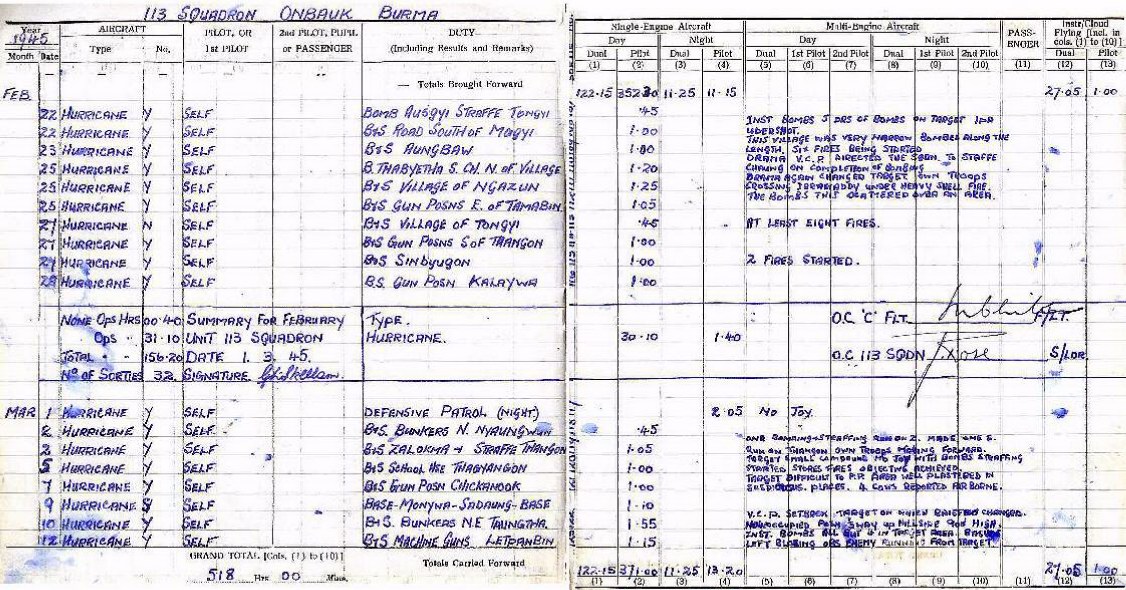 113 SQUADRON ONBAUK BURMA
Year 1945 AIRCRAFT PILOT, OR 1ST PILOT 2ND PILOT, PUPIL OR PASSENGER DUTY (Including Results and Remarks)
Month Date Type No.
Single-Engine Aircraft Multi-Engine Aircraft PASS-ENGER Instr/Cloud Flying [Incl. in cols. (1) to (10)]
Day Night Day Night
Dual Pilot Dual Pilot Dual 1st Pilot 2nd Pilot Dual 1st Pilot 2nd Pilot Dual Pilot
(1) (2) (3) (4) (5) (6) (7) (8) (9) (10) (11) (12) (13)
— Totals Brought Forward
FEB 122.15 352.30 11.25 11.15 27.05 1.00
22 HURRICANE Y SELF BOMB AUGGYI STRAFFE TONGYI .45
22 HURRICANE Y SELF B+S ROAD SOUTH OF MOGYI 1.00
23 HURRICANE Y SELF B+S AUNGBAW 1.00
25 HURRICANE Y SELF B. THABYETHA S. CH. N. OF VILLAGE 1.20
25 HURRICANE Y SELF B+S VILLAGE OF NGAZUN 1.25
25 HURRICANE Y SELF B+S GUN POSNS E. OF TAMABIN 1.05
27 HURRICANE N SELF B+S VILLAGE OF TONGYI .45
27 HURRICANE Y SELF B+S GUN POSNS S OF THANGON 1.00
27 HURRICANE Y SELF B+S SINBYUGON 1.00
28 HURRICANE Y SELF B.S. GUN POSN KALAYWA 1.00
INST BOMBS 5 DRS OF BOMBS ON TARGET
UDERSHOT.
THIS VILLAGE WAS VERY NARROW BOMBED ALONG THE
LENGTH. SIX FIRES BEING STARTED
DRAMA V.C.P. DIRECTED THE SQDN. TO STAFFE
CHAUNG ON COMPLETION OF BOMBING
DRAMA AGAIN CHANGED TARGET OWN TROOPS
CROSSING IRRAWADDY UNDER HEAVY SHELL FIRE.
THE BOMBS THIS SCATTERED OVER AN AREA.
AT LEAST EIGHT FIRES.
2 FIRES STARTED.
NONE OPS HRS 00.40 SUMMARY FOR FEBRUARY TYPE. O.C 'C' FLT. F/LT.
OPS " 31.10 UNIT 113 SQUADRON HURRICANE. 30.10 1.40
TOTAL " " 156.20 DATE 1. 3. 45. O.C 113 SQDN Rose S/LDR
No OF SORTIES 32. SIGNATURE G.L. Skellam.
MAR 1 HURRICANE Y SELF DEFENSIVE PATROL (NIGHT) 2.05 NO JOY
2 HURRICANE Y SELF B+S. BUNKERS N. NYAUNGWUN .45
2 HURRICANE Y SELF B+S ZALOKMA + STRAFFE THANGON 1.05
5 HURRICANE Y SELF B+S SCHOOL HSE THABYANGON 1.00
7 HURRICANE Y SELF B+S GUN POSN CHICKANOOK 1.00
9 HURRICANE S SELF BASE-MONYNA-SADAUNG-BASE 1.10
10 HURRICANE Y SELF B+S. BUNKERS N.E TAUNGTHA. 1.55
12 HURRICANE Y SELF B+S MACHINE GUNS LETPANBIN 1.15
ONE BOMBING+STRAFFING RUN ON Z. MADE ONE S.
RUN ON THANGON OWN TROOPS MOVING FORWARD.
TARGET SMALL COMPOUND NO JOY WITH BOMBS STRAFFING
STARTED STORES FIRES OBJECTIVE ACHIEVED.
TARGET DIFFICULT TO P.P. AREA WELL PLASTERED IN
SUSPICIOUS. PLACES. 4 COWS REPORTED AIRBORNE.
V.C.P. SETBACK TARGET ON WHICH BRIEFED CHANGED.
NOW OCCUPIED PAGN. 3 WAY UP HILLSIDE 900 HIGH.
INST. BOMBS ALL BUT 4 IN TARGET AREA.
LEFT BLAZING OBS ENEMY RUNNING FROM TARGET.
GRAND TOTAL [Cols. (1) to (10)] Totals Carried Forward
518 Hrs. 00 Mins. 122.15 371.00 11.25 13.20 27.05 1.00
(1) (2) (3) (4) (5) (6) (7) (8) (9) (10) (11) (12) (13)